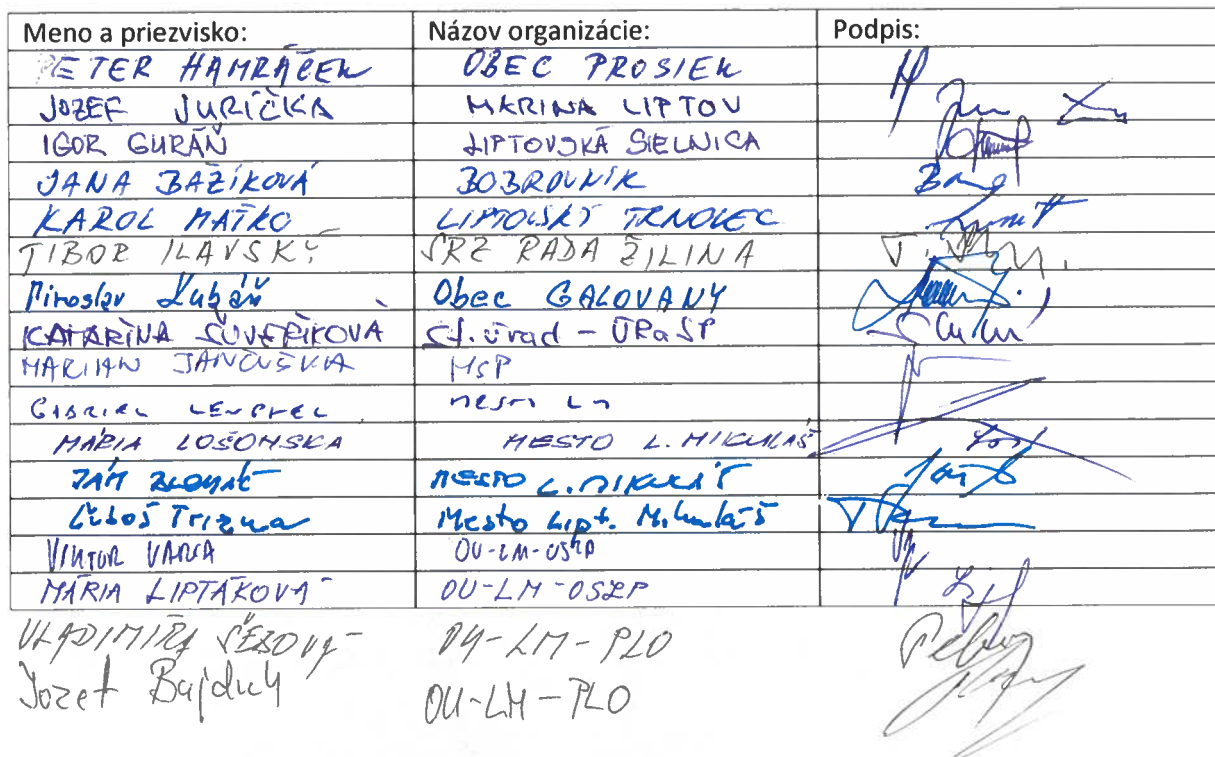 Meno a priezvisko: Názov organizácie: Podpis:
PETER HAMRÁČEK OBEC PROSIEK
JOZEF JURÍČKA MARINA LIPTOV
IGOR GURÁŇ LIPTOVSKÁ SIELNICA
JANA BAŽÍKOVÁ BOBROVNÍK
KAROL MAŤKO LIPTOVSKÝ TRNOVEC
TIBOR ILAVSKÝ SRZ RADA ŽILINA
Miroslav Kubáň Obec GALOVANY
KATARÍNA ŠUVERÍKOVÁ St. úrad - ÚRaSP
MARIAN JANČUŠKA MsP
GABRIEL LENGYEL MESTO LM
MÁRIA LOŠONSKÁ MESTO L. MIKULÁŠ
JÁN MESTO L. MIKULÁŠ
Ľuboš Trizna Mesto Lipt. Mikuláš
VIKTOR VARGA OU-LM-OSŽP
MÁRIA LIPTÁKOVÁ OU-LM-OSŽP
VLADIMÍRA OU-LM-PLO
Jozef Bajduch OU-LM-PLO